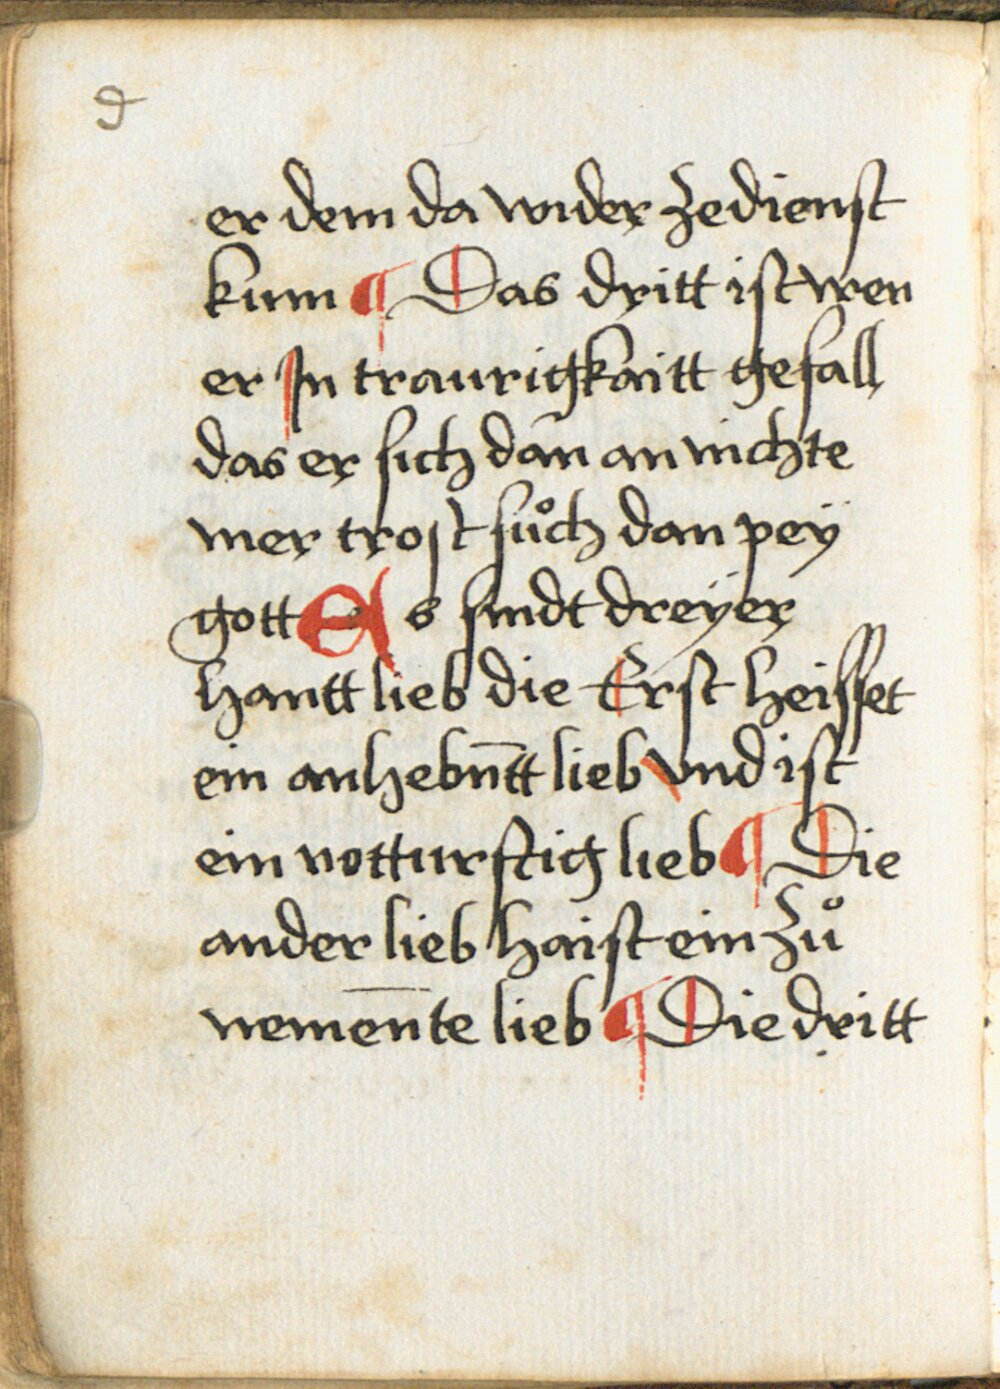 er dem da wider zedienst
kum ¶ Das dritt ist wen
er In traurigkaitt gefall
das er sich dan̄ an nichte
mer trost sůch dan peÿ
gott Es sindt dreÿer
hantt lieb die Erst heisset
ein anhebn̄tt lieb vnd ist
ein notturftig lieb ¶ Die
ander lieb haist ein zů
nemen̄te lieb ¶ Die dritt